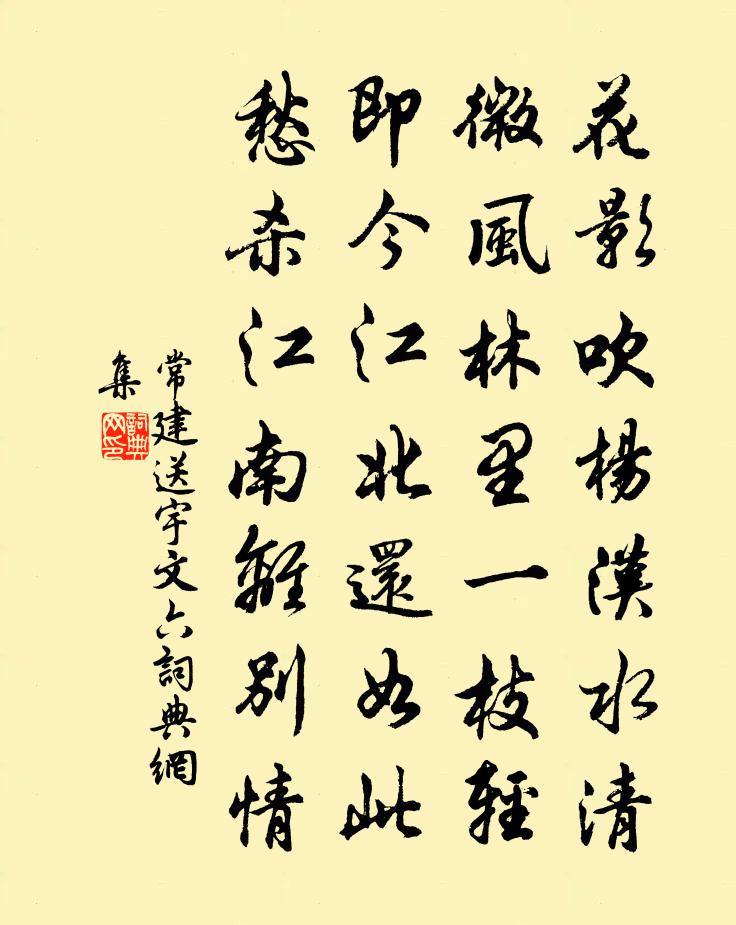 花影吹楊漢水清
微風林里一枝輕
即今江北還如此
愁杀江南離別情
常建送宇文六詞典網
集
詞典
网印